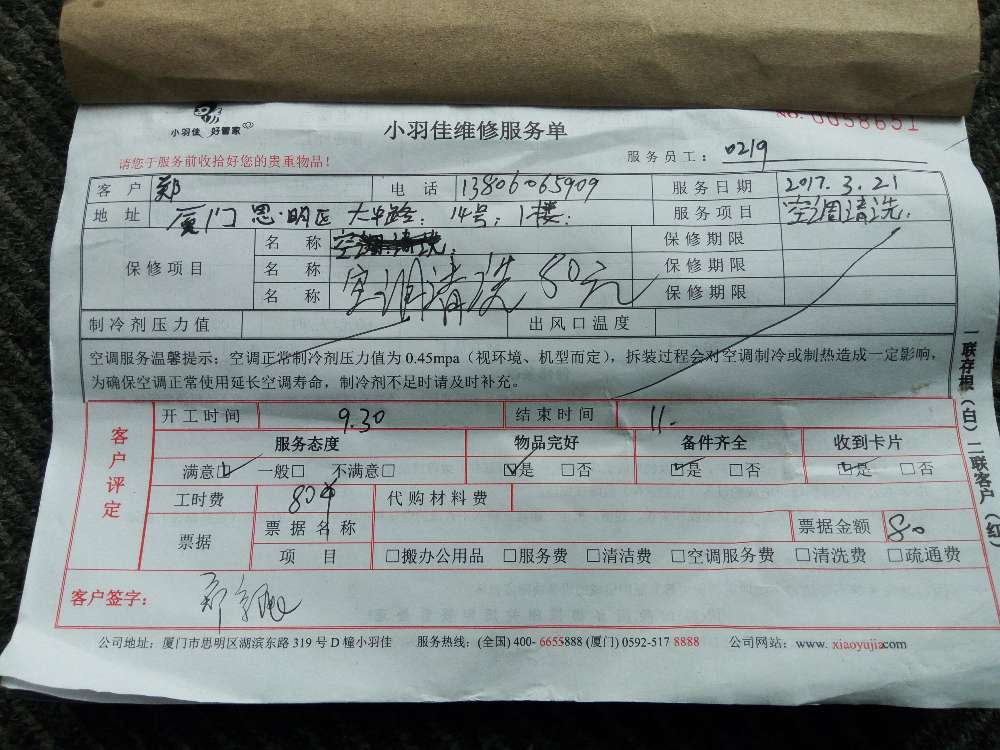 小羽佳 好管家
小羽佳维修服务单
No. 0058651
请您于服务前收拾好您的贵重物品！
服务员工：0219
客户 郑 电话 13806065909 服务日期 2017.3.21
地址 厦门思明区大中路：14号：1楼： 服务项目 空调清洗.
保修项目
名称 保修期限
名称 空调清洗 80元 保修期限
名称 保修期限
制冷剂压力值 出风口温度
空调服务温馨提示：空调正常制冷剂压力值为 0.45mpa（视环境、机型而定），拆装过程会对空调制冷或制热造成一定影响，
为确保空调正常使用延长空调寿命，制冷剂不足时请及时补充。
客户评定
开工时间 9.30 结束时间 11.
服务态度 物品完好 备件齐全 收到卡片
满意☑ 一般□ 不满意□ ☑是 □否 ☑是 □否 ☑是 □否
工时费 80 代购材料费
票据 票据名称 票据金额 80
项目 □搬办公用品 □服务费 □清洁费 □空调服务费 □清洗费 □疏通费
客户签字：
公司地址：厦门市思明区湖滨东路 319 号 D 幢小羽佳 服务热线：(全国) 400- 6655888 (厦门) 0592-517 8888 公司网站：www. xiaoyujia.com
一联存根（白）二联客户（红）